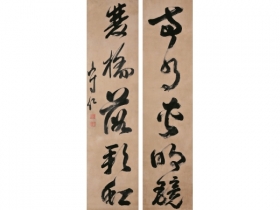 兩水夾明鏡
雙橋落彩虹
守仁